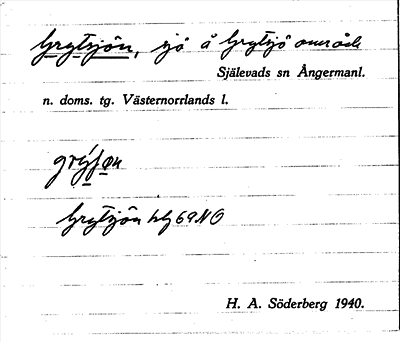 Grytsjön, sjö å Grytsjö område
Själevads sn Ångermanl.
n. doms. tg. Västernorrlands l.
Grytsjön blg 69 NO
H. A. Söderberg 1940.